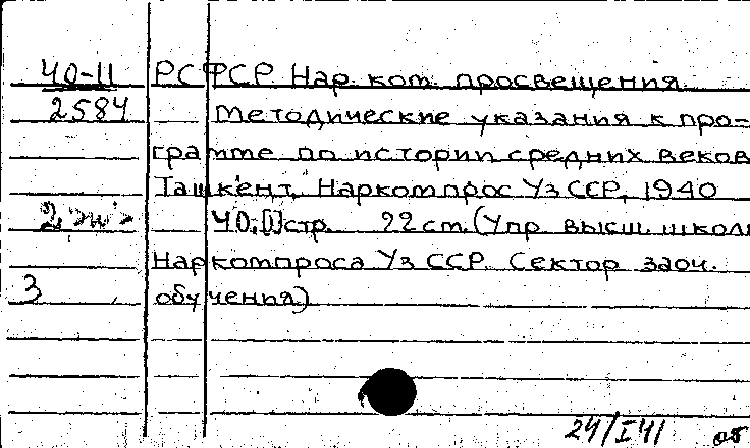 40-11 РСФСР. Нар. ком. просвещения.
2584 Методические указания к про-
грамме по истории средних веков
Ташкент, Наркомпрос УзССР, 1940
2 экз 40,[1]стр. 22 см. (Упр высш. школы
Наркомпроса УзССР. Сектор заоч.
3 обучения)
24/I 41